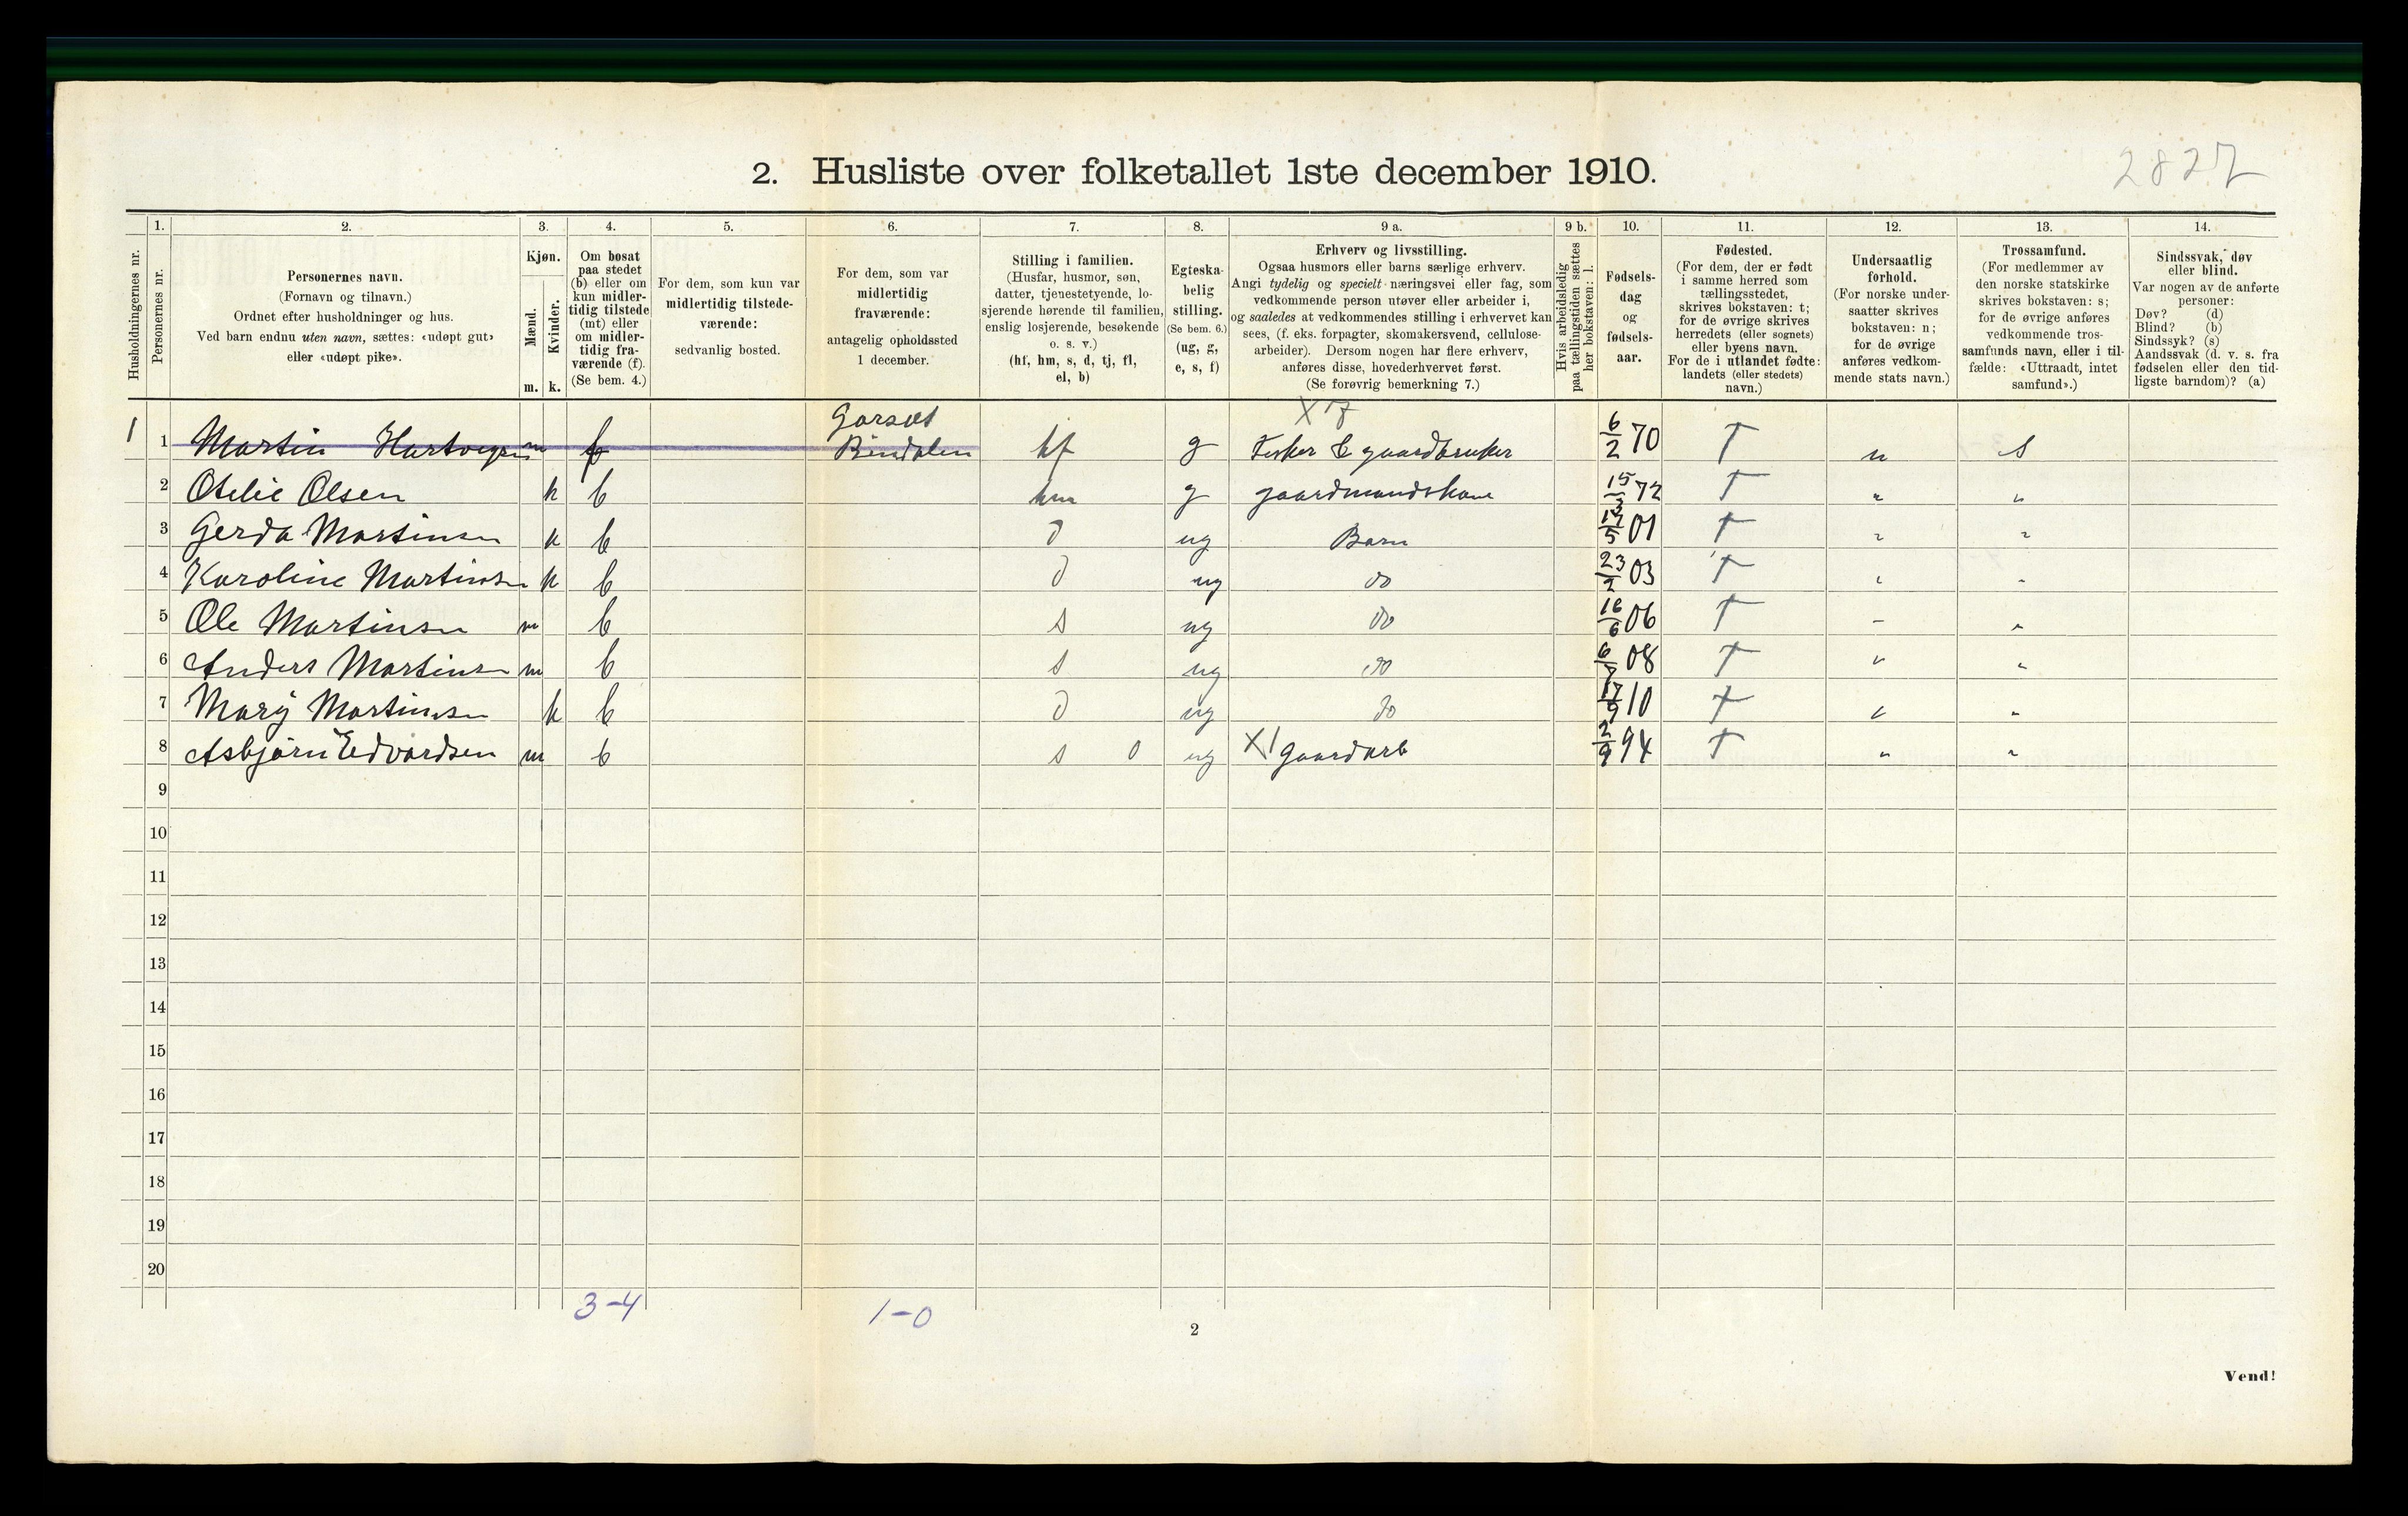 2827
2. Husliste over folketallet 1ste december 1910.
Husholdningernes nr.
1.
Personernes nr.
2.
Personernes navn.
(Fornavn og tilnavn.)
Ordnet efter husholdninger og hus.
Ved barn endnu uten navn, sættes: «udøpt gut»
eller «udøpt pike».
3.
Kjøn.
Mænd.
Kvinder.
m. k.
4.
Om bosat
paa stedet
(b) eller om
kun midler-
tidig tilstede
(mt) eller
om midler-
tidig fra-
værende (f).
(Se bem. 4.)
5.
For dem, som kun var
midlertidig tilstede-
værende:
sedvanlig bosted.
6.
For dem, som var
midlertidig
fraværende:
antagelig opholdssted
1 december.
7.
Stilling i familien.
(Husfar, husmor, søn,
datter, tjenestetyende, lo-
sjerende hørende til familien,
enslig losjerende, besøkende
o. s. v.)
(hf, hm, s, d, tj, fl,
el, b)
8.
Egteska-
belig
stilling.
(Se bem. 6.)
(ug, g,
e, s, f)
9 a.
Erhverv og livsstilling.
Ogsaa husmors eller barns særlige erhverv.
Angi tydelig og specielt næringsvei eller fag, som
vedkommende person utøver eller arbeider i,
og saaledes at vedkommendes stilling i erhvervet kan
sees, (f. eks. forpagter, skomakersvend, cellulose-
arbeider). Dersom nogen har flere erhverv,
anføres disse, hovederhvervet først.
(Se forøvrig bemerkning 7.)
9 b.
Hvis arbeidsledig
paa tællingstiden sættes
her bokstaven: l.
10.
Fødsels-
dag
og
fødsels-
aar.
11.
Fødested.
(For dem, der er født
i samme herred som
tællingsstedet,
skrives bokstaven: t;
for de øvrige skrives
herredets (eller sognets)
eller byens navn.
For de i utlandet fødte:
landets (eller stedets)
navn.)
12.
Undersaatlig
forhold.
(For norske under-
saatter skrives
bokstaven: n;
for de øvrige
anføres vedkom-
mende stats navn.)
13.
Trossamfund.
(For medlemmer av
den norske statskirke
skrives bokstaven: s;
for de øvrige anføres
vedkommende tros-
samfunds navn, eller i til-
fælde: «Uttraadt, intet
samfund».)
14.
Sindssvak, døv
eller blind.
Var nogen av de anførte
personer:
Døv? (d)
Blind? (b)
Sindssyk? (s)
Aandssvak (d. v. s. fra
fødselen eller den tid-
ligste barndom)? (a)
1 1 Martin Hartvigsen m f Bindalen hf g Fisker & gaardbruker 6/2 70 T n s
2 Otelie Olsen k b hm g gaardmandskone 15/3 72 T " "
3 Gerda Martinsen k b d ug Barn 01 T " "
4 Karoline Martinsen k b d ug do 23/2 03 T " "
5 Ole Martinsen m b s ug do 16/6 06 T " "
6 Anders Martinsen m b s ug do 08 T " "
7 Mary Martinsen k b d ug do 17/9 10 T " "
8 Asbjørn Edvardsen m b s 0 ug X1 gaardarb 2/9 94 T " "
9
10
11
12
13
14
15
16
17
18
19
20
3-4 1-0
2
Vend!